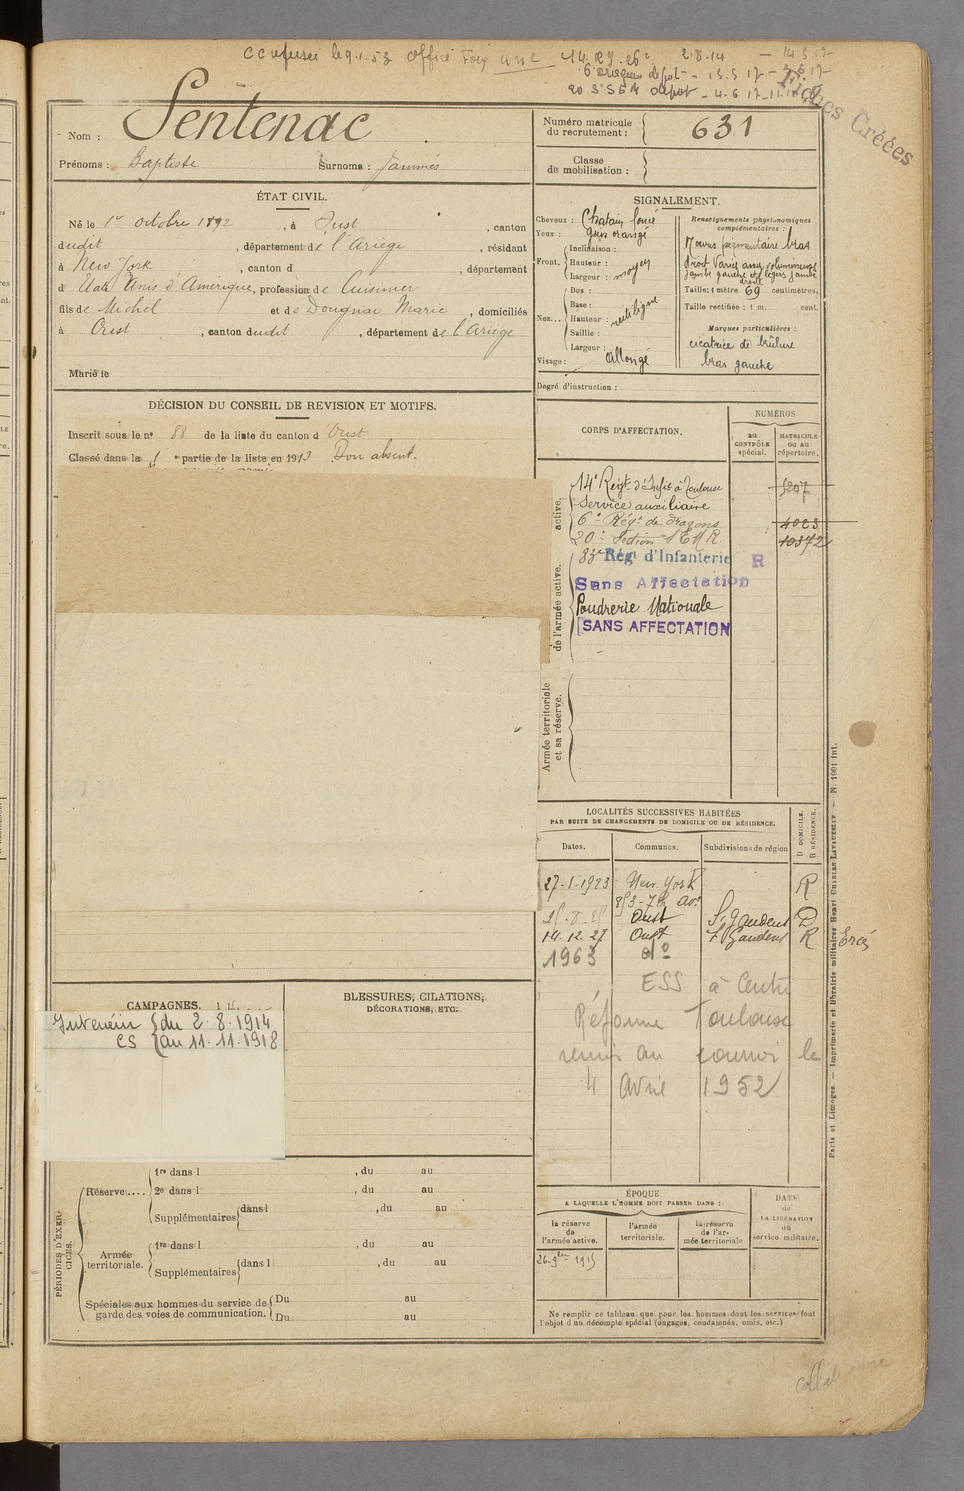 14. R.I. 26c 2-8-14 — 14 3 17
dépôt - 15.3 17 -
20 S SEM dépôt - 4.6 17 - 11.
Fiches Créées
Nom : Sentenac
Prénoms : Baptiste Surnoms : Jammés
Numéro matricule du recrutement : 631
Classe de mobilisation :
ÉTAT CIVIL.
Né le 1er octobre 1892, à Oust, canton
dudit, département de l'Ariège, résidant
à New York, canton d , département
d' Etats Unis d'Amérique, profession de Cuisinier
fils de Michel et de Dougnac Marie, domiciliés
à Oust, canton dudit, département de l'Ariège
Marié le
SIGNALEMENT.
Cheveux : Chatain foncé
Yeux : gris orangé
Front. Inclinaison :
Hauteur :
Largeur : moyen
Nez... Dos :
Base :
Hauteur : rectiligne
Saillie :
Largeur :
Visage : allongé
Renseignements physionomiques complémentaires :
bras
droit Varices assez volumineuses
jambe gauche et légères jambe
droite
Taille : 1 mètre 69 centimètres.
Taille rectifiée : 1 m. cent.
Marques particulières :
cicatrice de brûlure
bras gauche
Degré d'instruction :
DÉCISION DU CONSEIL DE REVISION ET MOTIFS.
Inscrit sous le no 88 de la liste du canton d'Oust
Classé dans la 1 e partie de la liste en 1912 Bon absent.
CORPS D'AFFECTATION.
NUMÉROS
au CONTRÔLE spécial.
MATRICULE ou au répertoire.
de l'armée active.
active.
14e Régt d'Infie à Toulouse 5207
Service auxiliaire
6e Régt de dragons 4023
20e Section S E M R. 10372
83e Régt d'Infanterie R
Sans Affectation
Poudrerie Nationale
SANS AFFECTATION
Armée territoriale et sa réserve.
LOCALITÉS SUCCESSIVES HABITÉES
PAR SUITE DE CHANGEMENTS DE DOMICILE OU DE RÉSIDENCE.
Dates. Communes. Subdivisions de région
D DOMICILE.
R RÉSIDENCE.
27-1-1923 New-York R
853-7th av.
25-8-25 Oust St Gaudens D
14.12.27 Oust St Gaudens R Ercé
1963 do
ESS à Centre
Réforme Toulouse
remis au courrier le
4 Avril 1952
CAMPAGNES.
Intérieur du 2.8.1914
CS au 11.11.1918
BLESSURES, CITATIONS, DÉCORATIONS, ETC.
PÉRIODES D'EXERCICES.
Réserve.... 1re dans l , du au
2e dans l , du au
Supplémentaires dans l , du au
Armée territoriale. 1re dans l , du au
Supplémentaires dans l , du au
Spéciales aux hommes du service de garde des voies de communication. Du au
Du au
ÉPOQUE
A LAQUELLE L'HOMME DOIT PASSER DANS :
la réserve de l'armée active.
l'armée territoriale.
la réserve de l'armée territoriale.
DATE de LA LIBÉRATION du service militaire.
26-9bre 1915
Ne remplir ce tableau que pour les hommes dont les services font
l'objet d'un décompte spécial (engagés, condamnés, omis, etc.)
Paris et Limoges. — Imprimerie et librairie militaires Henri CHARLES-LAVAUZELLE — N. 1001 int.